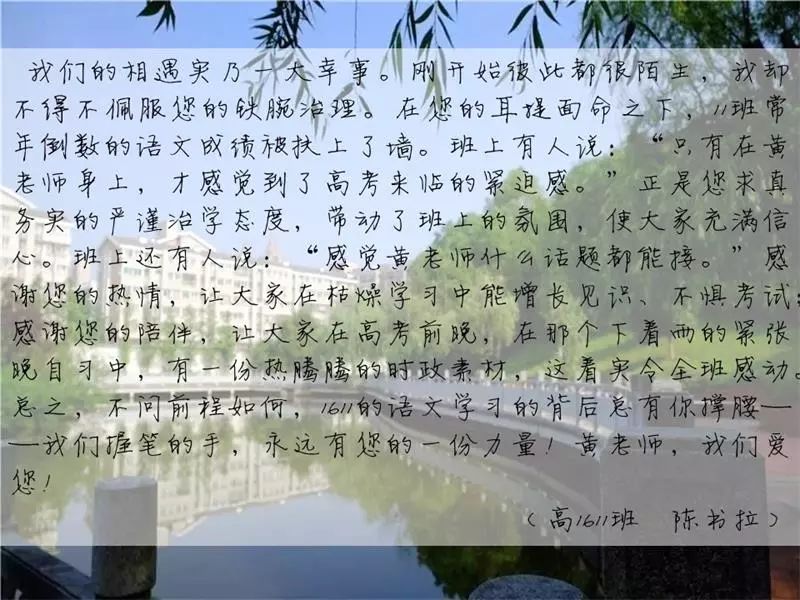 我们的相遇实乃一大幸事。刚开始彼此都很陌生，我却
不得不佩服您的铁腕治理。在您的耳提面命之下，11班常
年倒数的语文成绩被扶上了墙。班上有人说：“只有在黄
老师身上，才感觉到了高考来临的紧迫感。”正是您求真
务实的严谨治学态度，带动了班上的氛围，使大家充满信
心。班上还有人说：“感觉黄老师什么话题都能接。”感
谢您的热情，让大家在枯燥学习中能增长见识、不惧考试；
感谢您的陪伴，让大家在高考前晚，在那个下着雨的紧张
晚自习中，有一份热腾腾的时政素材，这着实令全班感动。
总之，不问前程如何，1611的语文学习的背后总有你撑腰—
—我们握笔的手，永远有您的一份力量！黄老师，我们爱
您！
（高1611班　陈书拉）